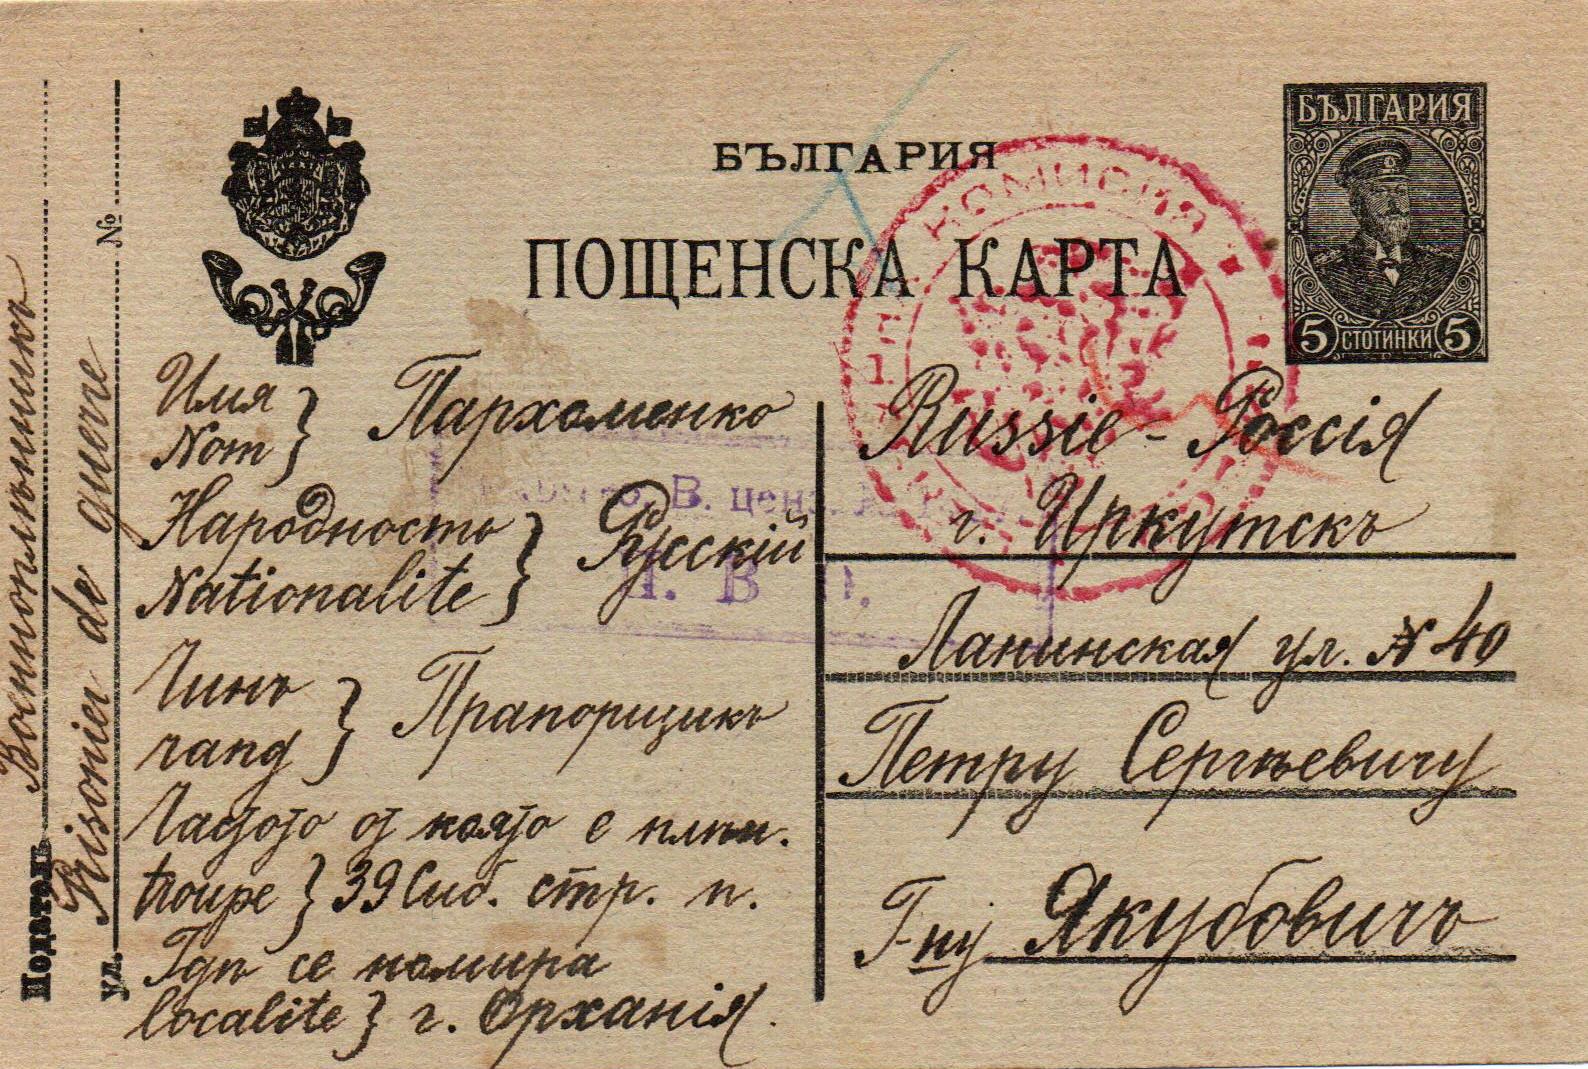 БЪЛГАРИЯ
ПОЩЕНСКА КАРТА
БЪЛГАРИЯ
5 СТОТИНКИ 5
КОМИСИЯ
В. ценз.
В
Податель Военнопленникъ
Prisonier de guerre
ул. №
Имя
Nom } Пархоменко
Народность
Nationalite } Русскій
Чинъ
rang } Прапорщикъ
Частьта от която е плѣн.
troupe } 39 Сиб. стр. п.
Гдѣ се намира
localite } г. Орханія.
Russie - Россія
г. Иркутскъ
Ланинская ул. № 40
Петру Сергѣевичу
Г-ну Якубовичъ